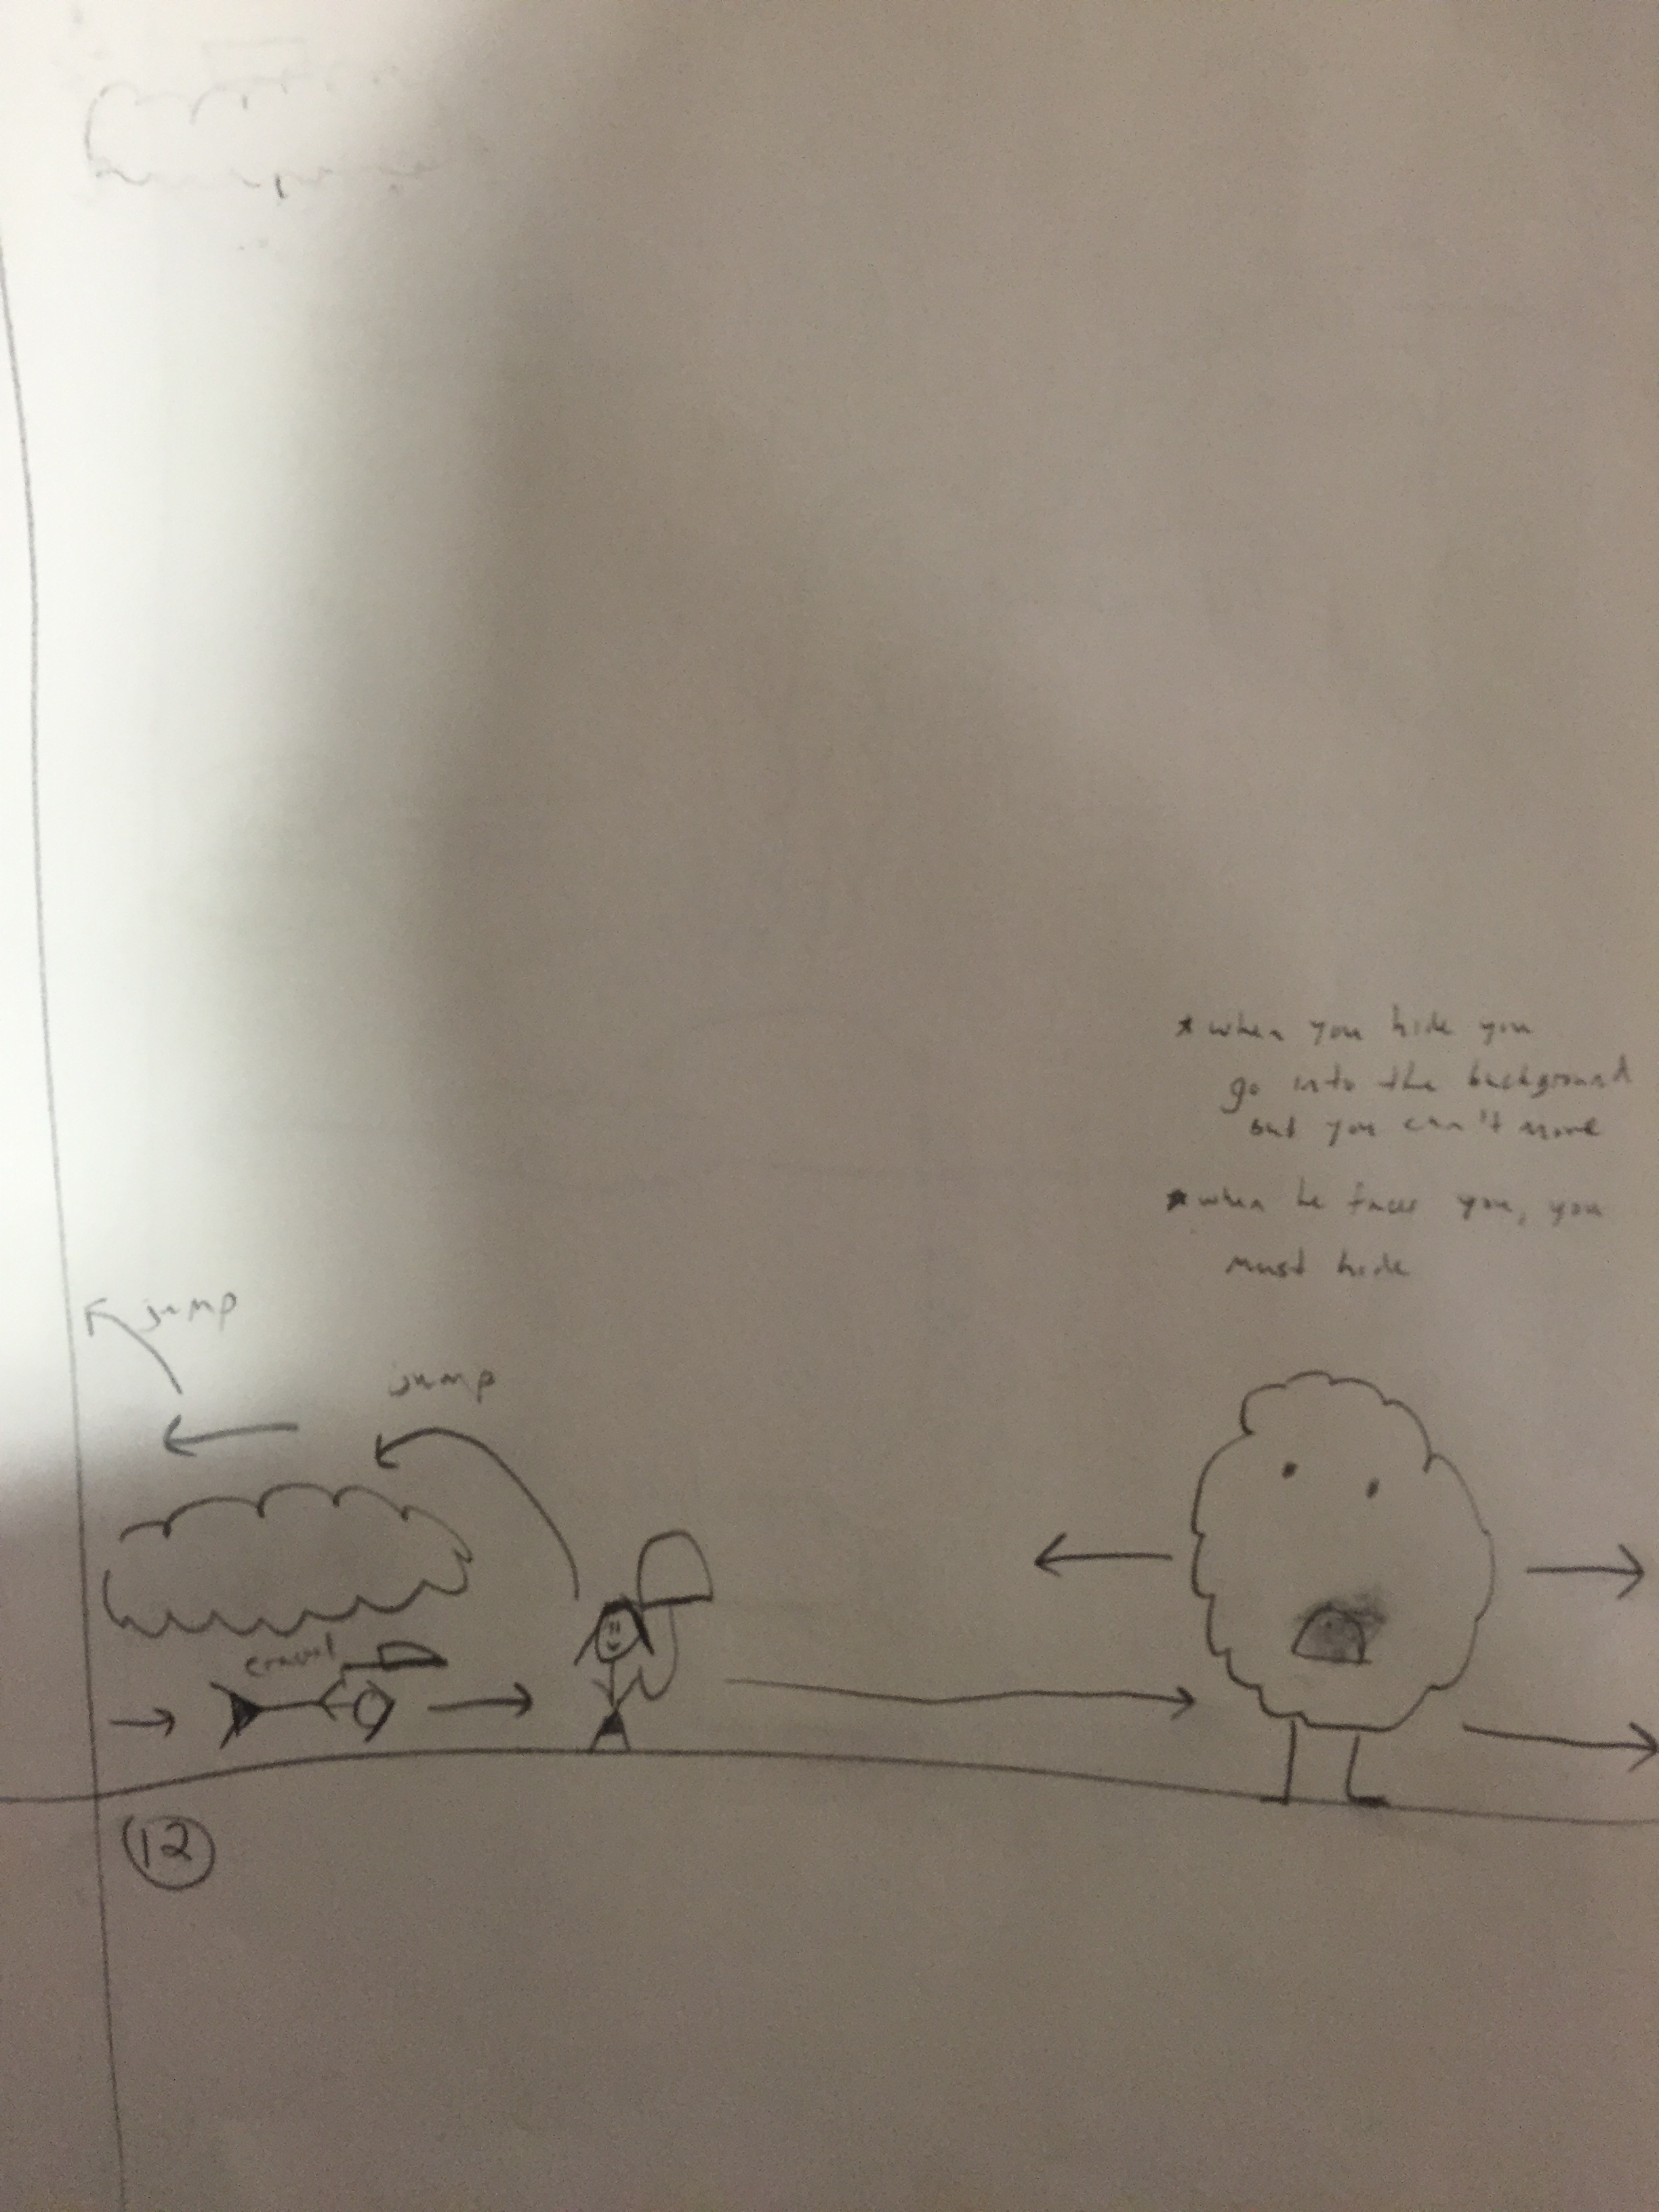 * when you hide you
go into the background
but you can't move
* when he faces you, you
must hide
jump
jump
crawl
12